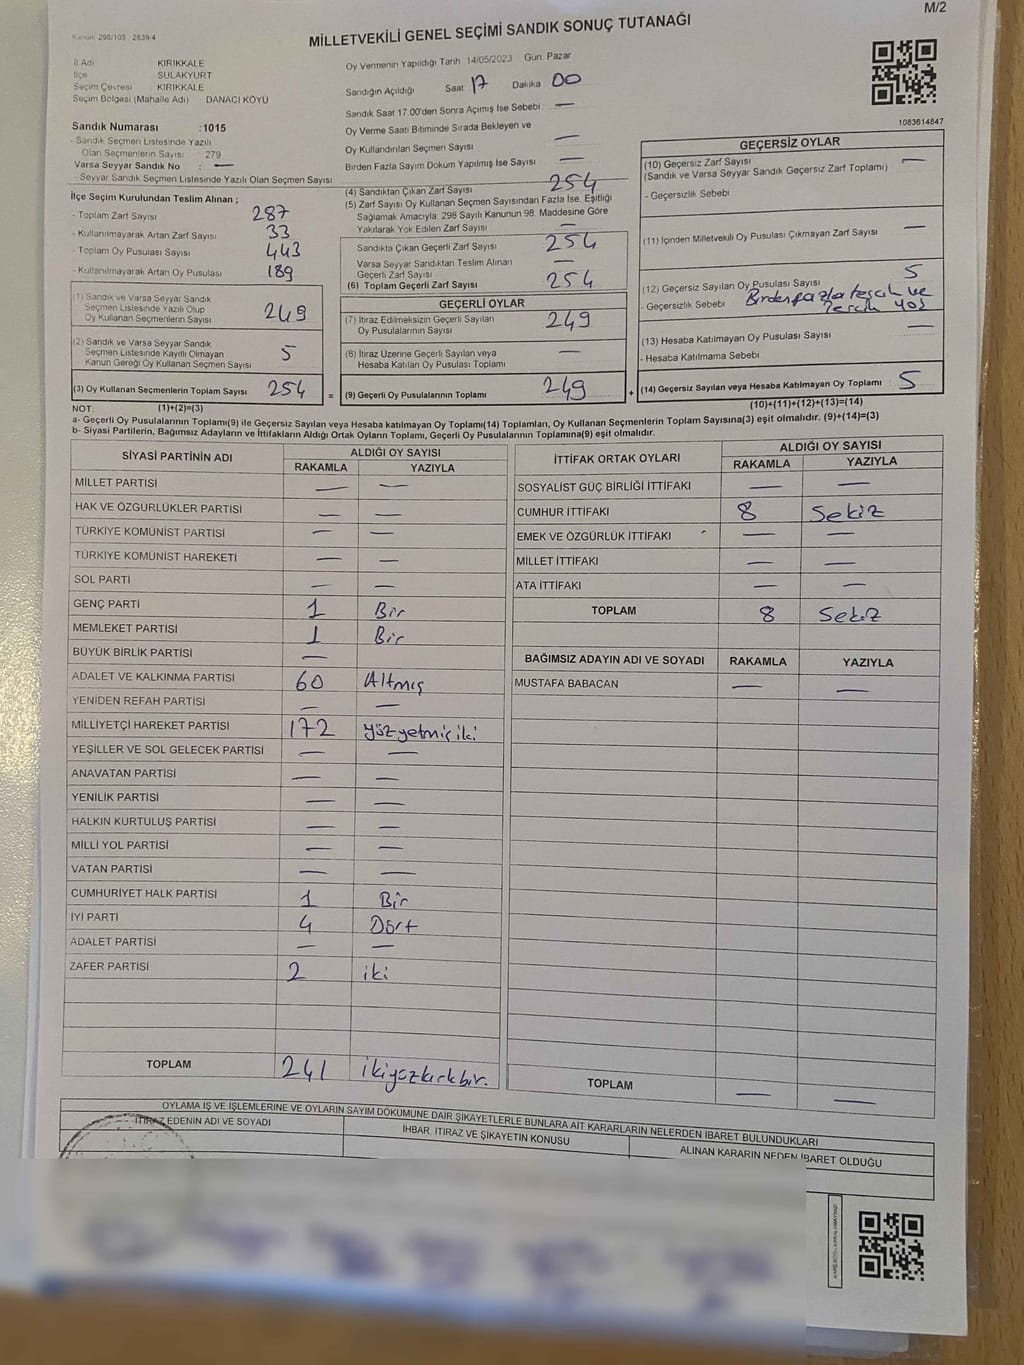 M/2
Kanun: 298/105 : 2839/4
MİLLETVEKİLİ GENEL SEÇİMİ SANDIK SONUÇ TUTANAĞI
İl Adı KIRIKKALE
İlçe SULAKYURT
Seçim Çevresi KIRIKKALE
Seçim Bölgesi (Mahalle Adı) DANACI KÖYÜ
Sandık Numarası : 1015
- Sandık Seçmen Listesinde Yazılı
Olan Seçmenlerin Sayısı : 279
Varsa Seyyar Sandık No : —
- Seyyar Sandık Seçmen Listesinde Yazılı Olan Seçmen Sayısı
İlçe Seçim Kurulundan Teslim Alınan ;
- Toplam Zarf Sayısı 287
- Kullanılmayarak Artan Zarf Sayısı 33
- Toplam Oy Pusulası Sayısı 443
- Kullanılmayarak Artan Oy Pusulası 189
(1) Sandık ve Varsa Seyyar Sandık
Seçmen Listesinde Yazılı Olup
Oy Kullanan Seçmenlerin Sayısı 249
(2) Sandık ve Varsa Seyyar Sandık
Seçmen Listesinde Kayıtlı Olmayan
Kanun Gereği Oy Kullanan Seçmen Sayısı 5
(3) Oy Kullanan Seçmenlerin Toplam Sayısı 254
Oy Vermenin Yapıldığı Tarih 14/05/2023 Gün: Pazar
Sandığın Açıldığı Saat 17 Dakika 00
Sandık Saat 17.00'den Sonra Açımış İse Sebebi : —
Oy Verme Saati Bitiminde Sırada Bekleyen ve
Oy Kullandırılan Seçmen Sayısı —
Birden Fazla Sayım Döküm Yapılmış İse Sayısı —
(4) Sandıktan Çıkan Zarf Sayısı 254
(5) Zarf Sayısı Oy Kullanan Seçmen Sayısından Fazla İse, Eşitliği
Sağlamak Amacıyla, 298 Sayılı Kanunun 98. Maddesine Göre
Yakılarak Yok Edilen Zarf Sayısı —
Sandıkta Çıkan Geçerli Zarf Sayısı 254
Varsa Seyyar Sandıktan Teslim Alınan
Geçerli Zarf Sayısı —
(6) Toplam Geçerli Zarf Sayısı 254
GEÇERLİ OYLAR
(7) İtiraz Edilmeksizin Geçerli Sayılan
Oy Pusulalarının Sayısı 249
(8) İtiraz Üzerine Geçerli Sayılan veya
Hesaba Katılan Oy Pusulası Toplamı —
= (9) Geçerli Oy Pusulalarının Toplamı 249 +
1083614847
GEÇERSİZ OYLAR
(10) Geçersiz Zarf Sayısı —
(Sandık ve Varsa Seyyar Sandık Geçersiz Zarf Toplamı)
- Geçersizlik Sebebi
(11) İçinden Milletvekili Oy Pusulası Çıkmayan Zarf Sayısı —
(12) Geçersiz Sayılan Oy Pusulası Sayısı 5
- Geçersizlik Sebebi Birden fazla tercih ve
Tercih yok
(13) Hesaba Katılmayan Oy Pusulası Sayısı —
- Hesaba Katılmama Sebebi
(14) Geçersiz Sayılan veya Hesaba Katılmayan Oy Toplamı 5
NOT: (1)+(2)=(3) (10)+(11)+(12)+(13)=(14)
a- Geçerli Oy Pusulalarının Toplamı(9) ile Geçersiz Sayılan veya Hesaba katılmayan Oy Toplamı(14) Toplamları, Oy Kullanan Seçmenlerin Toplam Sayısına(3) eşit olmalıdır. (9)+(14)=(3)
b- Siyasi Partilerin, Bağımsız Adayların ve İttifakların Aldığı Ortak Oyların Toplamı, Geçerli Oy Pusulalarının Toplamına(9) eşit olmalıdır.
SİYASİ PARTİNİN ADI ALDIĞI OY SAYISI
RAKAMLA YAZIYLA
MİLLET PARTİSİ — —
HAK VE ÖZGÜRLÜKLER PARTİSİ — —
TÜRKİYE KOMÜNİST PARTİSİ — —
TÜRKİYE KOMÜNİST HAREKETİ — —
SOL PARTİ — —
GENÇ PARTİ 1 Bir
MEMLEKET PARTİSİ 1 Bir
BÜYÜK BİRLİK PARTİSİ —
ADALET VE KALKINMA PARTİSİ 60 Altmış
YENİDEN REFAH PARTİSİ — —
MİLLİYETÇİ HAREKET PARTİSİ 172 yüzyetmişiki
YEŞİLLER VE SOL GELECEK PARTİSİ — —
ANAVATAN PARTİSİ — —
YENİLİK PARTİSİ — —
HALKIN KURTULUŞ PARTİSİ — —
MİLLİ YOL PARTİSİ — —
VATAN PARTİSİ — —
CUMHURİYET HALK PARTİSİ 1 Bir
İYİ PARTİ 4 Dört
ADALET PARTİSİ — —
ZAFER PARTİSİ 2 iki
TOPLAM 241 ikiyüzkırkbir.
İTTİFAK ORTAK OYLARI ALDIĞI OY SAYISI
RAKAMLA YAZIYLA
SOSYALİST GÜÇ BİRLİĞİ İTTİFAKI — —
CUMHUR İTTİFAKI 8 Sekiz
EMEK VE ÖZGÜRLÜK İTTİFAKI — —
MİLLET İTTİFAKI — —
ATA İTTİFAKI — —
TOPLAM 8 Sekiz
BAĞIMSIZ ADAYIN ADI VE SOYADI RAKAMLA YAZIYLA
MUSTAFA BABACAN — —
TOPLAM — —
OYLAMA İŞ VE İŞLEMLERİNE VE OYLARIN SAYIM DÖKÜMÜNE DAİR ŞİKAYETLERLE BUNLARA AİT KARARLARIN NELERDEN İBARET BULUNDUKLARI
İTİRAZ EDENİN ADI VE SOYADI İHBAR, İTİRAZ VE ŞİKAYETİN KONUSU ALINAN KARARIN NEDEN İBARET OLDUĞU